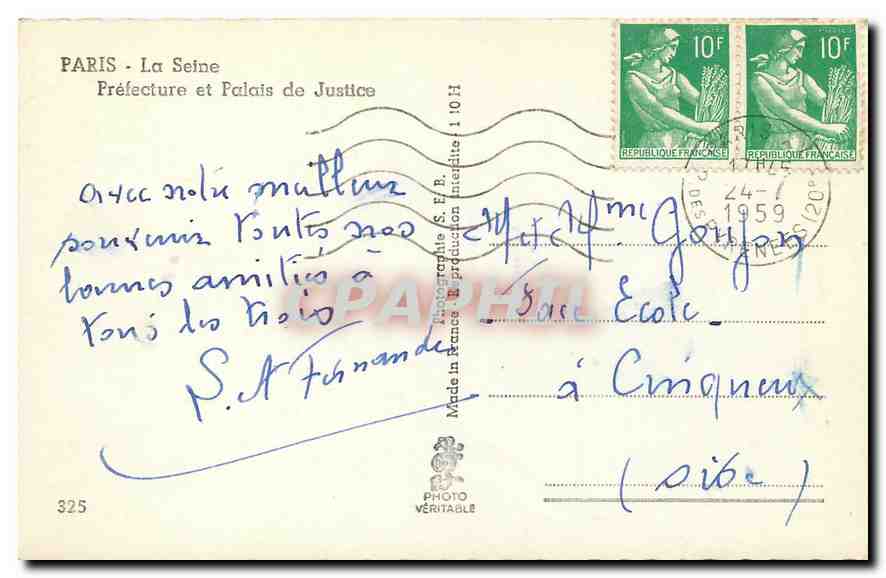 PARIS - La Seine
Préfecture et Palais de Justice
avec notre meilleur
souvenir toutes nos
bonnes amitiés à
tous les trois
S. A Fernandez
325
Photographie S. E. B.
Made in France - Reproduction interdite - 1 10 H
PHOTO
VÉRITABLE
10F
POSTES
REPUBLIQUE FRANÇAISE
10F
POSTES
REPUBLIQUE FRANÇAISE
PARIS
17H45
24-7
1959
DES PYRENEES (20e)
M et Mme Goujon
Face Ecole
à Cinqueux
(Oise)
CPAPHIL